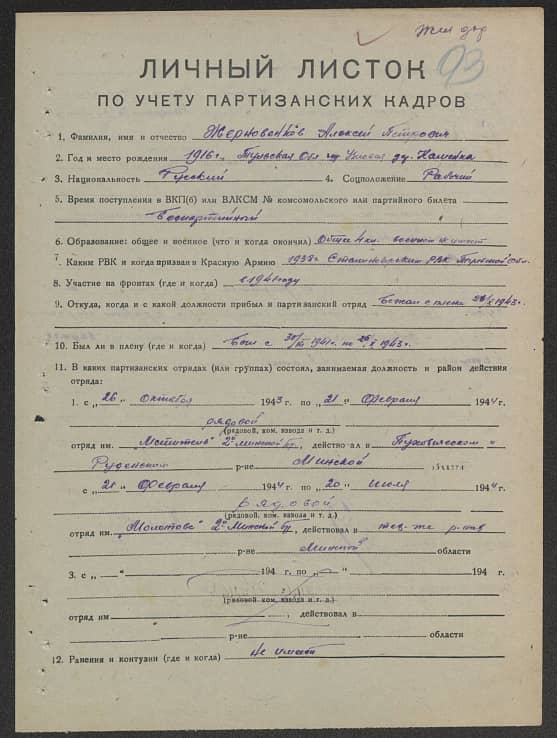 93
ЛИЧНЫЙ ЛИСТОК
ПО УЧЕТУ ПАРТИЗАНСКИХ КАДРОВ
1. Фамилия, имя и отчество Алексей
2. Год и место рождения 1916 г. Тульская
3. Национальность Русский 4. Соцположение Рабочий
5. Время поступления в ВКП(б) или ВЛКСМ № комсомольского или партийного билета
Беспартийный
6. Образование: общее и военное (что и когда окончил)
7. Каким РВК и когда призван в Красную Армию 1938 г. РВК
8. Участие на фронтах (где и когда) с 1941 году
9. Откуда, когда и с какой должности прибыл и партизанский отряд Бежал с плена 1943 г.
10. Был ли в плену (где и когда) Был с 1941 г. по 1943 г.
11. В каких партизанских отрядах (или группах) состоял, занимаемая должность и район действия
отряда:
1. с „26" октября 1943 г. по „21" Февраля 1944 г.
рядовой
(рядовой, ком. взвода и т. д.)
отряд им. „Мститель" 2й Минской бр., действовал в Пуховическом и
Руденском р-не Минской области
с „21" Февраля 1944 г. по „20" июля 1944 г.
рядовой
(рядовой, ком. взвода и т. д.)
отряд им. „Молотова" 2й Минской бр., действовал в
р-не Минской области
3. с „ — " 194 г. по „ — " 194 г.
(рядовой ком. взвода и т. д.)
отряд им. , действовал в
р-не области
12. Ранения и контузии (где и когда) не имает